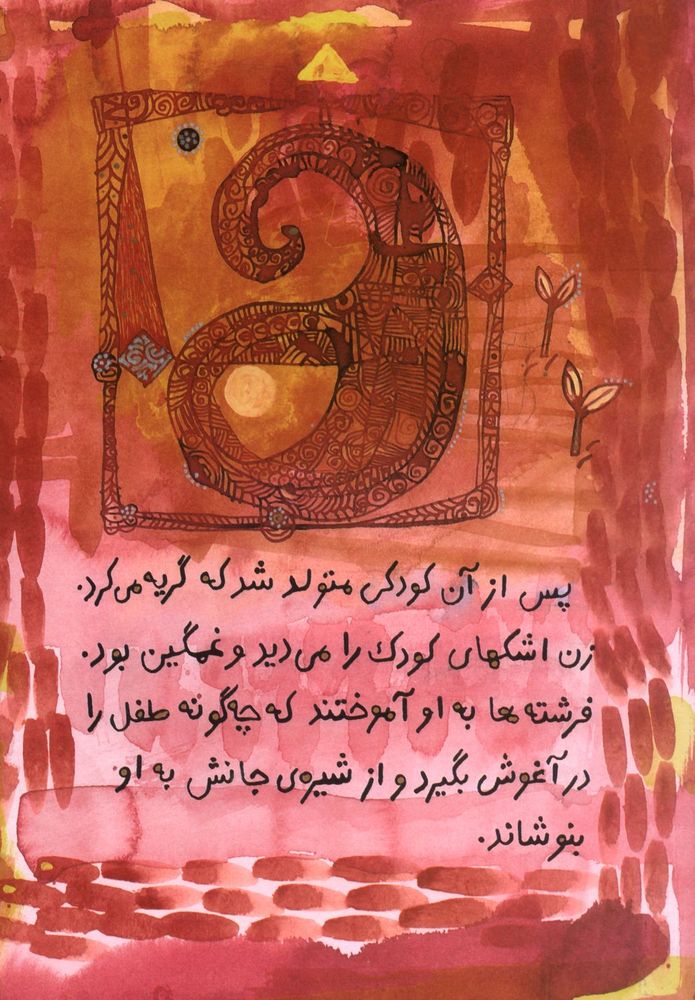 پس از آن کودکی متولد شد که گریه می‌کرد.
زن اشکهای کودک را می‌دید و غمگین بود.
فرشته‌ها به او آموختند که چه‌گونه طفل را
در آغوش بگیرد و از شیره‌ی جانش به او
بنوشاند.